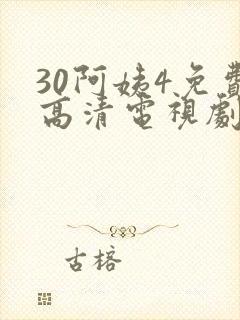 30阿姨4免費
高清電視劇
古榕